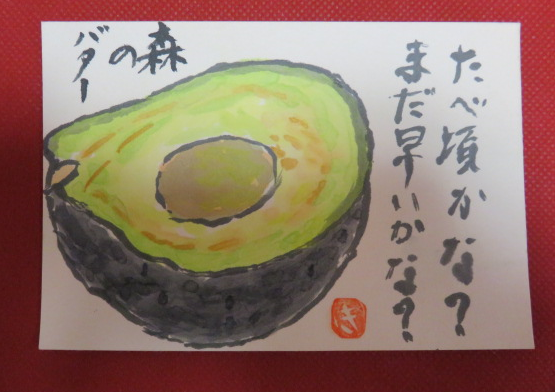 たべ頃かな?
まだ早いかな?
森
の
バター
き